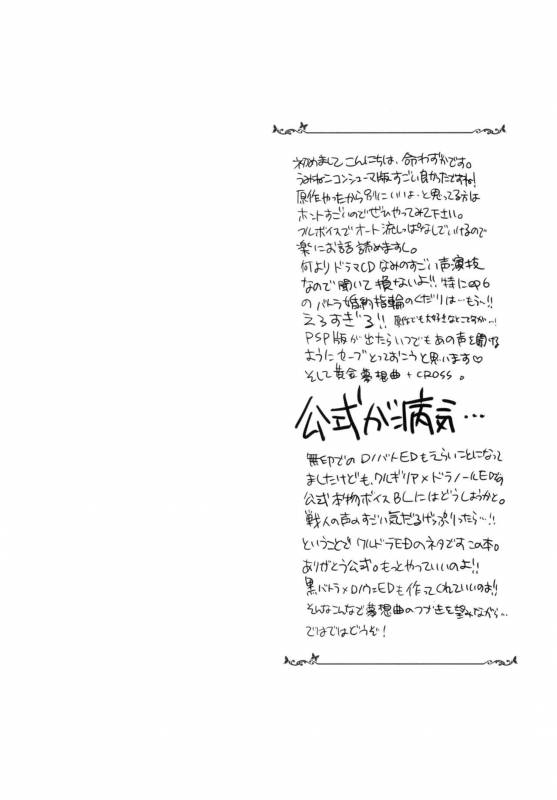 初めまして こんにちは、命わずかです。
うみねこコンシューマ版すごい良かったですね!
原作やったから別にいいよ・と思ってる方は
ホントすごいのでぜひやってみて下さい。
フルボイスでオート流しっぱなしでいけるので
楽にお話読めますし。
何よりドラマCDなみのすごい声演技
なので聞いて損ないよ!! 特にep6
のバトラ婚約指輪のくだりは…もう…!!
えろすぎる!! 原作でも大好きなとこですが…!
PSP版が出たらいつでもあの声を聞ける
ようにセーブとっておこうと思います♡
そして黄金夢想曲+CROSS。
公式が病気…
無印での D/バトEDもえらいことになって
ましたけども、ワルギリア×ドラノールEDの
公式本物ボイスBLにはどうしようかと。
戦人の声のすごい気だるげっぷりったら…!!
ということで ワルドラEDのネタです この本。
ありがとう公式。もっとやっていいのよ!!
黒バトラ×D/ウィEDも作ってくれていいのよ!!
そんなこんなで夢想曲のつづきを望みながら…
ではではどうぞ!